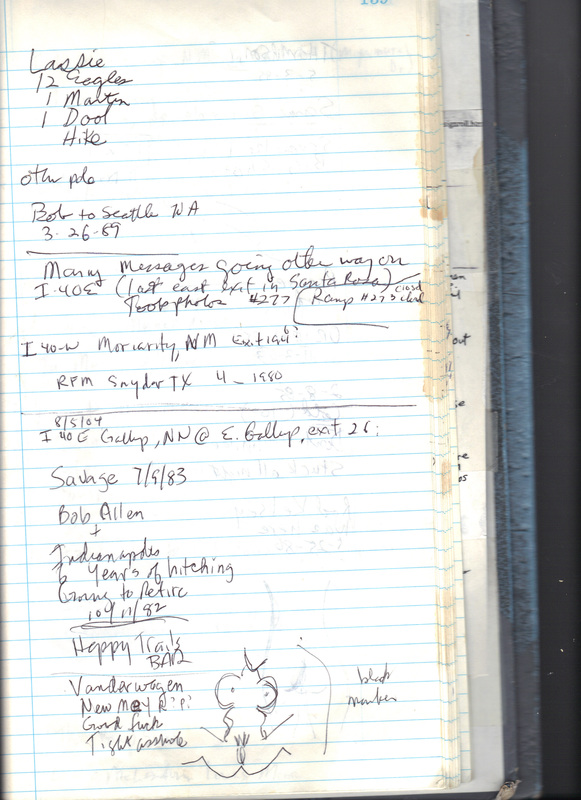 Lassie
12 Eegles
1 Marten
1 Door
Hike
other pole
Bob to Seattle WA
3-26-89
Many Messages going other way on
I-40E (last east exit in Santa Rosa) closed
Took photos #277 Ramp #273 closed
I 40-W Moriarity, NM Exit 194?
RFM Snyder TX 4-1980
8/5/04
I 40 E Gallup, NN @ E. Gallup, exit 26;
Savage 7/9/83
Bob Allen
+
Indianapolis
Years of hitching
Going to Retire
10/11/82
Happy Trails
BAR
Vanderwagen
New
Good fuck
Tight asshole
black
marker